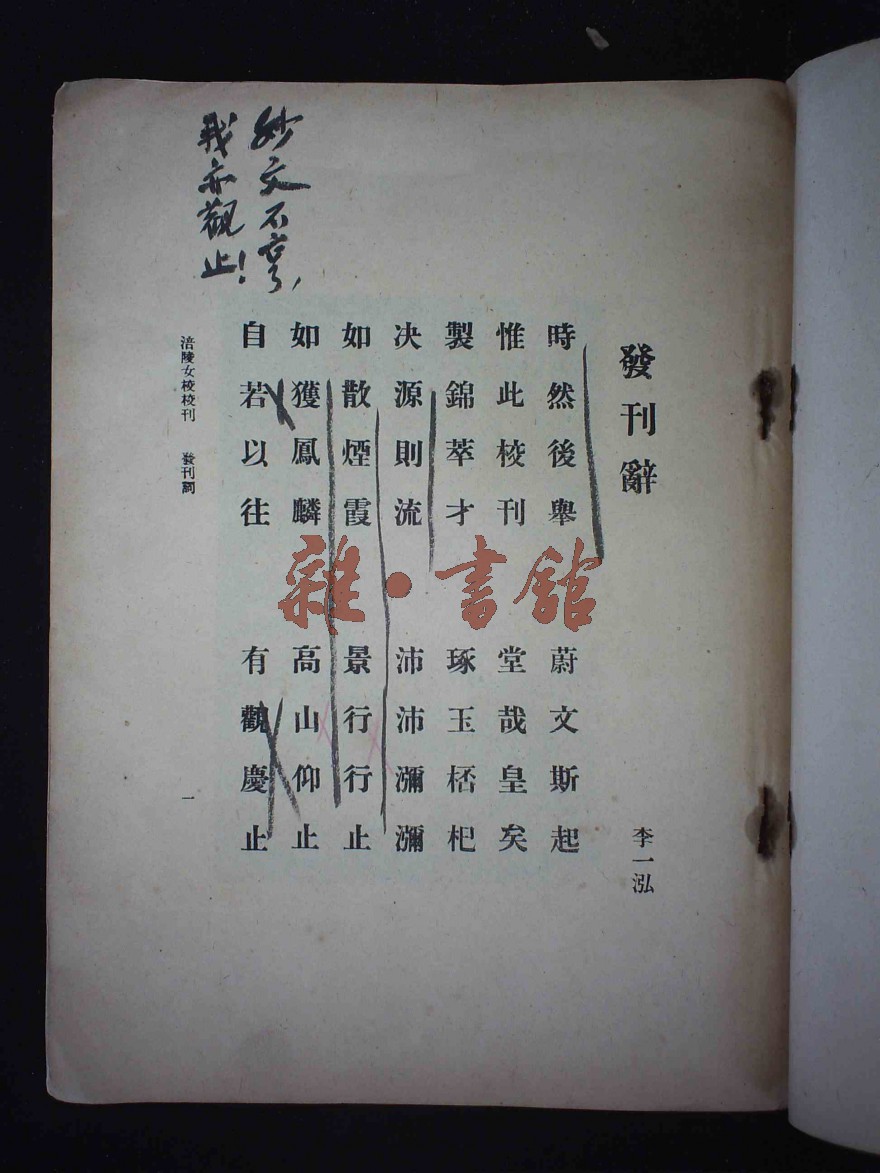 發刊辭
李一泓
時然後舉　蔚文斯起
惟此校刊　堂哉皇矣
製錦萃才　琢玉楛杞
决源則流　沛沛瀰瀰
如散煙霞　景行行止
如獲鳳麟　高山仰止
自若以往　有觀慶止
妙文不亨，
我亦觀止！
涪陵女校校刊　發刊詞
一
雜·書館